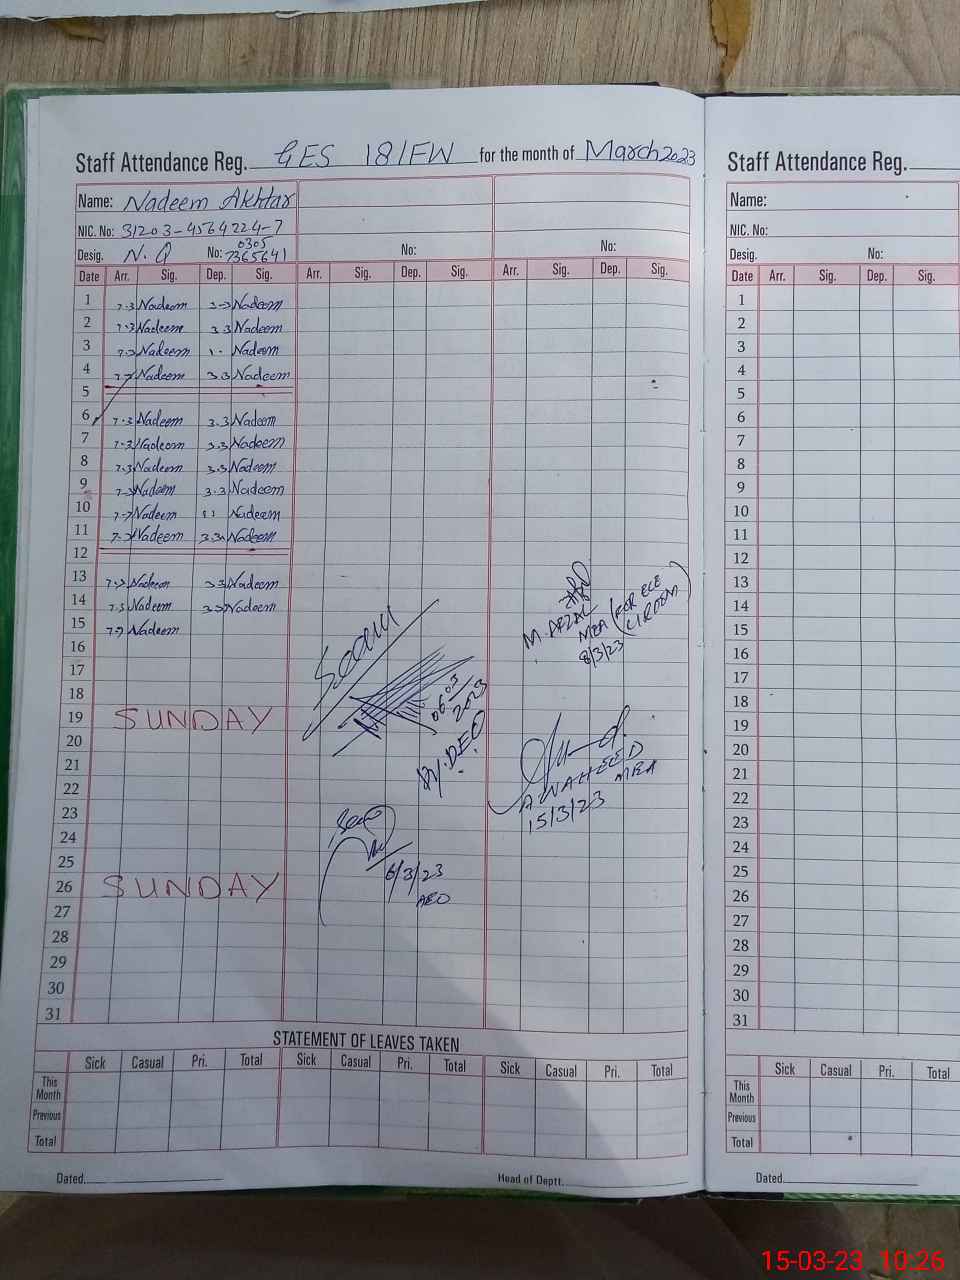 Staff Attendance Reg. GES 181/FW for the month of March 2023
Name: Nadeem Akhtar
NIC. No: 31203-4564224-7
Desig. N.Q No: 0305 7365641 No: No:
Date Arr. Sig. Dep. Sig. Arr. Sig. Dep. Sig. Arr. Sig. Dep. Sig.
1 7.3 Nadeem 3.3 Nadeem
2 7.3 Nadeem 3.3 Nadeem
3 7.3 Nadeem 1. Nadeem
4 7.3 Nadeem 3.3 Nadeem
5
6 7.3 Nadeem 3.3 Nadeem
7 7.3 Nadeem 3.3 Nadeem
8 7.3 Nadeem 3.3 Nadeem
9 7.3 Nadeem 3.3 Nadeem
10 7.3 Nadeem 11 Nadeem
11 7.3 Nadeem 3.3 Nadeem
12
13 7.3 Nadeem 3.3 Nadeem
14 7.3 Nadeem 3.3 Nadeem
15 7.3 Nadeem
16
17
18
19 SUNDAY
20
21
22
23
24
25
26 SUNDAY
27
28
29
30
31
06.03
2023
Dy.DEO
6/3/23
AEO
M. AFZAL
MEA (FOR ECE
8/3/23
A WAHEED
MEA
15/3/23
STATEMENT OF LEAVES TAKEN
Sick Casual Pri. Total Sick Casual Pri. Total Sick Casual Pri. Total
This Month
Previous
Total
Dated. Head of Deptt.
Staff Attendance Reg.
Name:
NIC. No:
Desig. No:
Date Arr. Sig. Dep. Sig.
1
2
3
4
5
6
7
8
9
10
11
12
13
14
15
16
17
18
19
20
21
22
23
24
25
26
27
28
29
30
31
Sick Casual Pri. Total
This Month
Previous
Total
Dated.
15-03-23 10:26